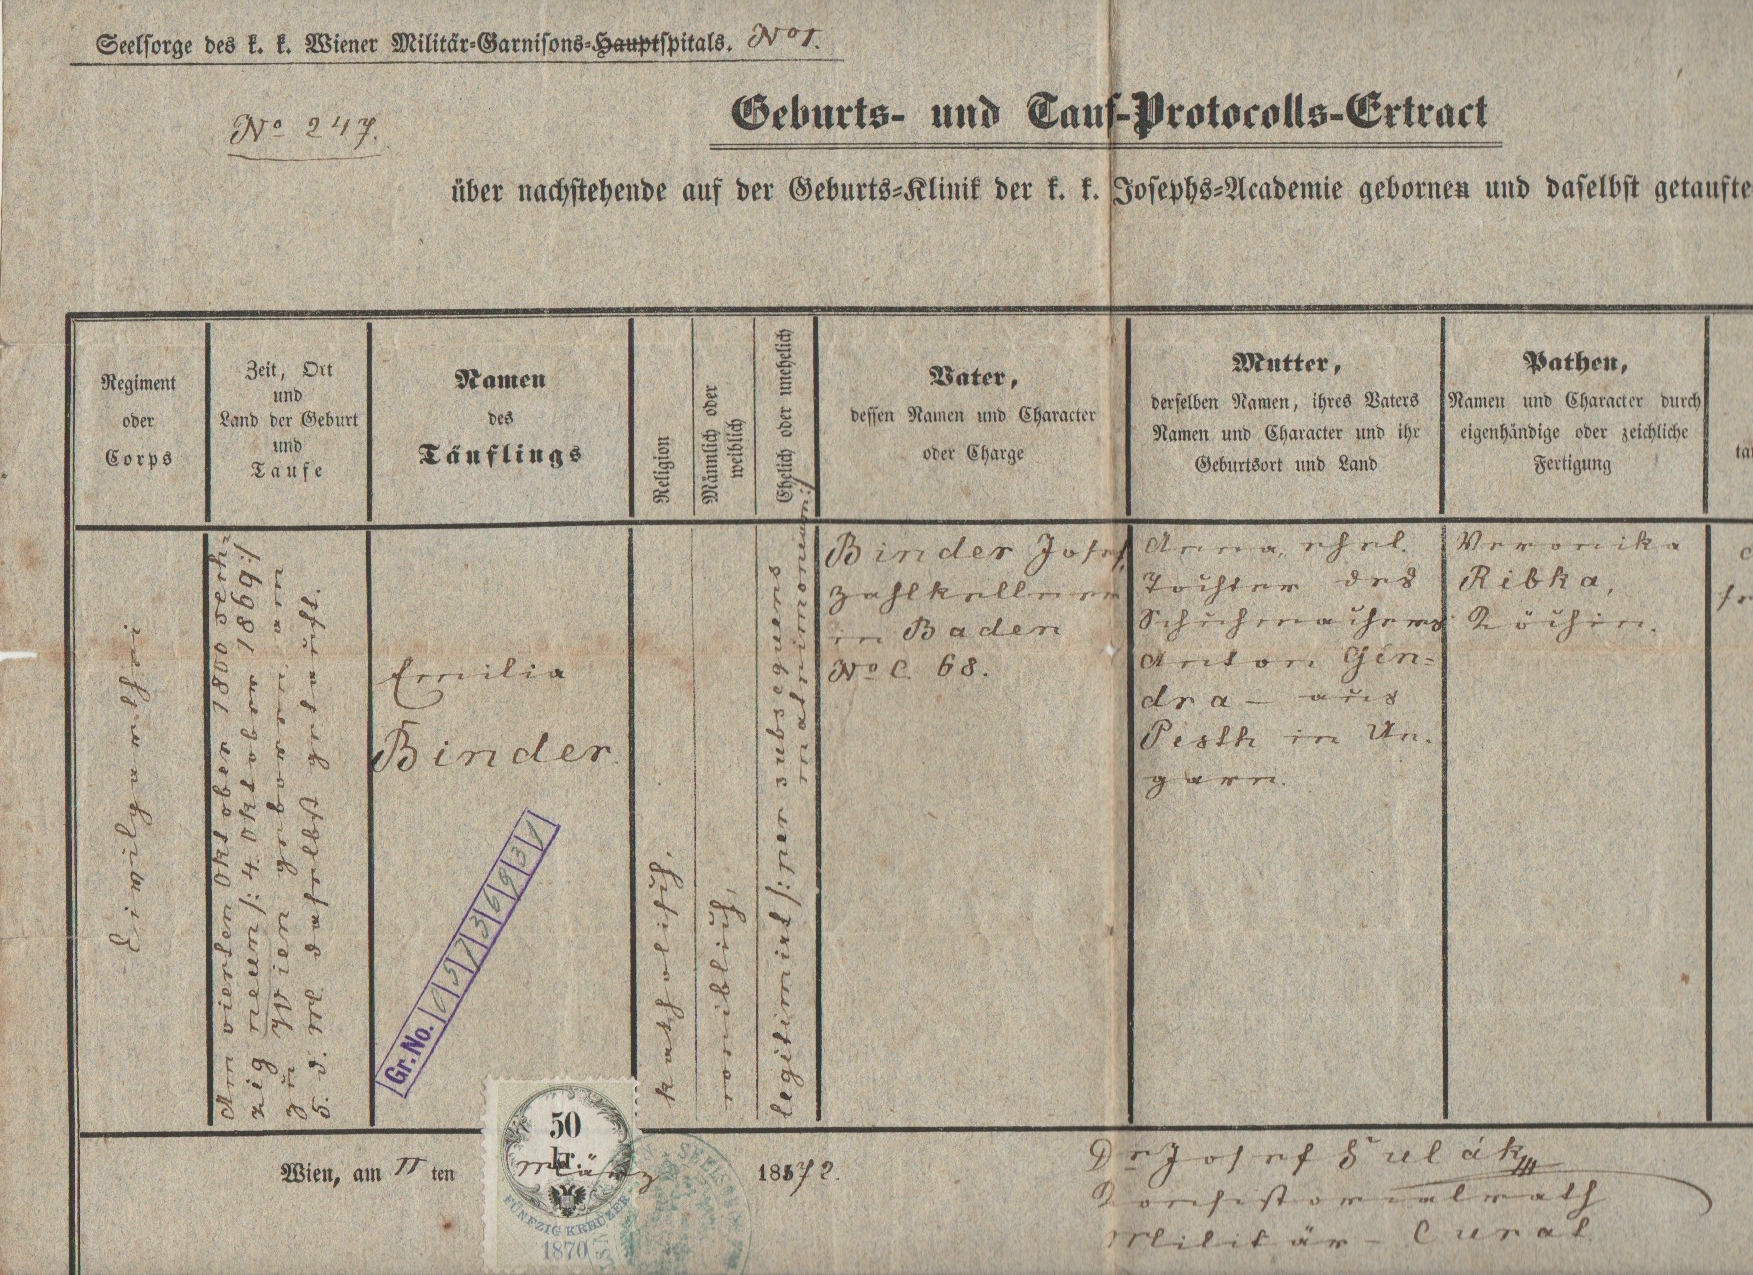 Seelsorge des k. k. Wiener Militär-Garnisons-Hauptspitals. No 1.
No 247.
Geburts- und Tauf-Protocolls-Extract
über nachstehende auf der Geburts-Klinik der k. k. Josephs-Academie gebornen und daselbst getaufte
Regiment
oder
Corps
Zeit, Ort
und
Land der Geburt
und
Taufe
Namen
des
Täuflings
Religion
Männlich oder
weiblich
Ehelich oder unehelich
Vater,
dessen Namen und Character
oder Charge
Mutter,
derselben Namen, ihres Vaters
Namen und Character und ihr
Geburtsort und Land
Pathen,
Namen und Character durch
eigenhändige oder zeichliche
Fertigung
Civilparthei
Am vierten Oktober 1800 sech-
zig neun /: 4. Oktober 1869 :/
zu Wien geboren am
5. d. M. daselbst getauft.
Emilia
Binder.
Gr. No.
katholisch,
weiblich,
legitimirt /: per subsequens
matrimonium :/
Binder Josef,
Zahlkellner
in Baden
No C. 68.
Anna, ehel.
Tochter des
Schuhmachers
Anton Gin-
dra – aus
Pesth in Un-
garn.
Veronika
Ribka,
Köchin.
Wien, am 11 ten März 1872.
50
kr.
FÜNFZIG KREUZER
1870
Dr Josef Šulák
Konsistorialrath
Militär-Curat